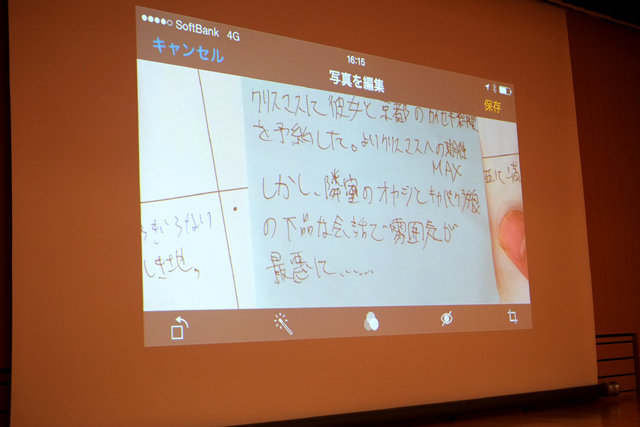 SoftBank 4G
16:15
キャンセル
写真を編集
保存
クリスマスに彼女と京都の
を予約した。よりクリスマスへの期待
MAX
しかし、隣室のオヤジとキャバクラ嬢
の下品な会話で雰囲気が
最悪に、……